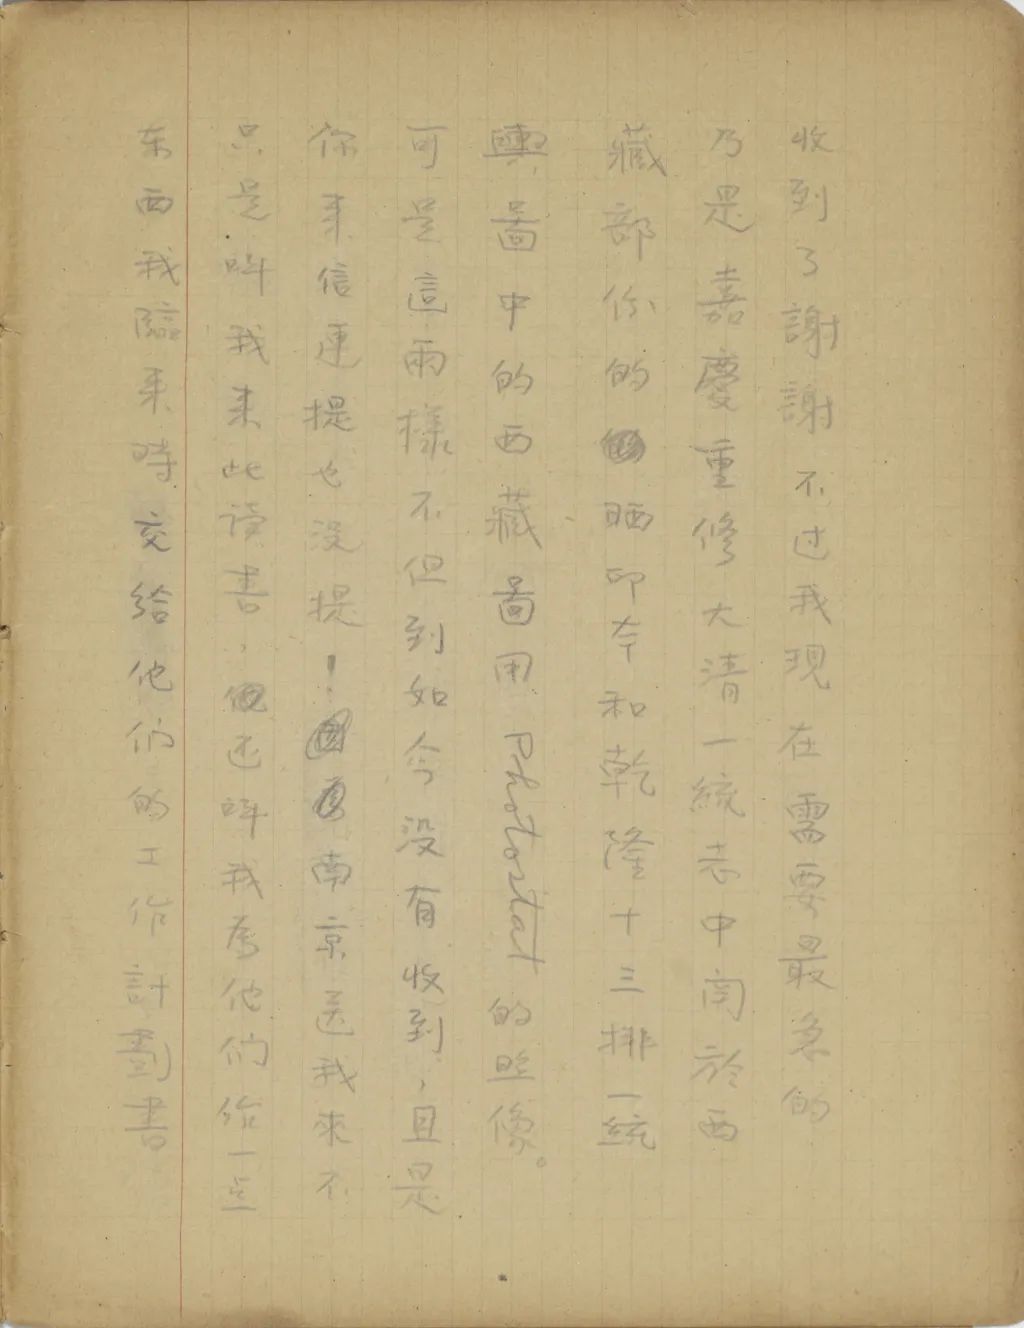 收到了謝謝不过我現在需要最急的
乃是嘉慶重修大清一統志中関於西
藏部份的晒印本和乾隆十三排一統
輿圖中的西藏圖用 Photostat 的照像。
可是這兩樣不但到如今没有收到，且是
你来信連提也没提！南京送我來不
只是呌我来此读書，还呌我為他们作一点
东西我臨来時交给他们的工作計劃書